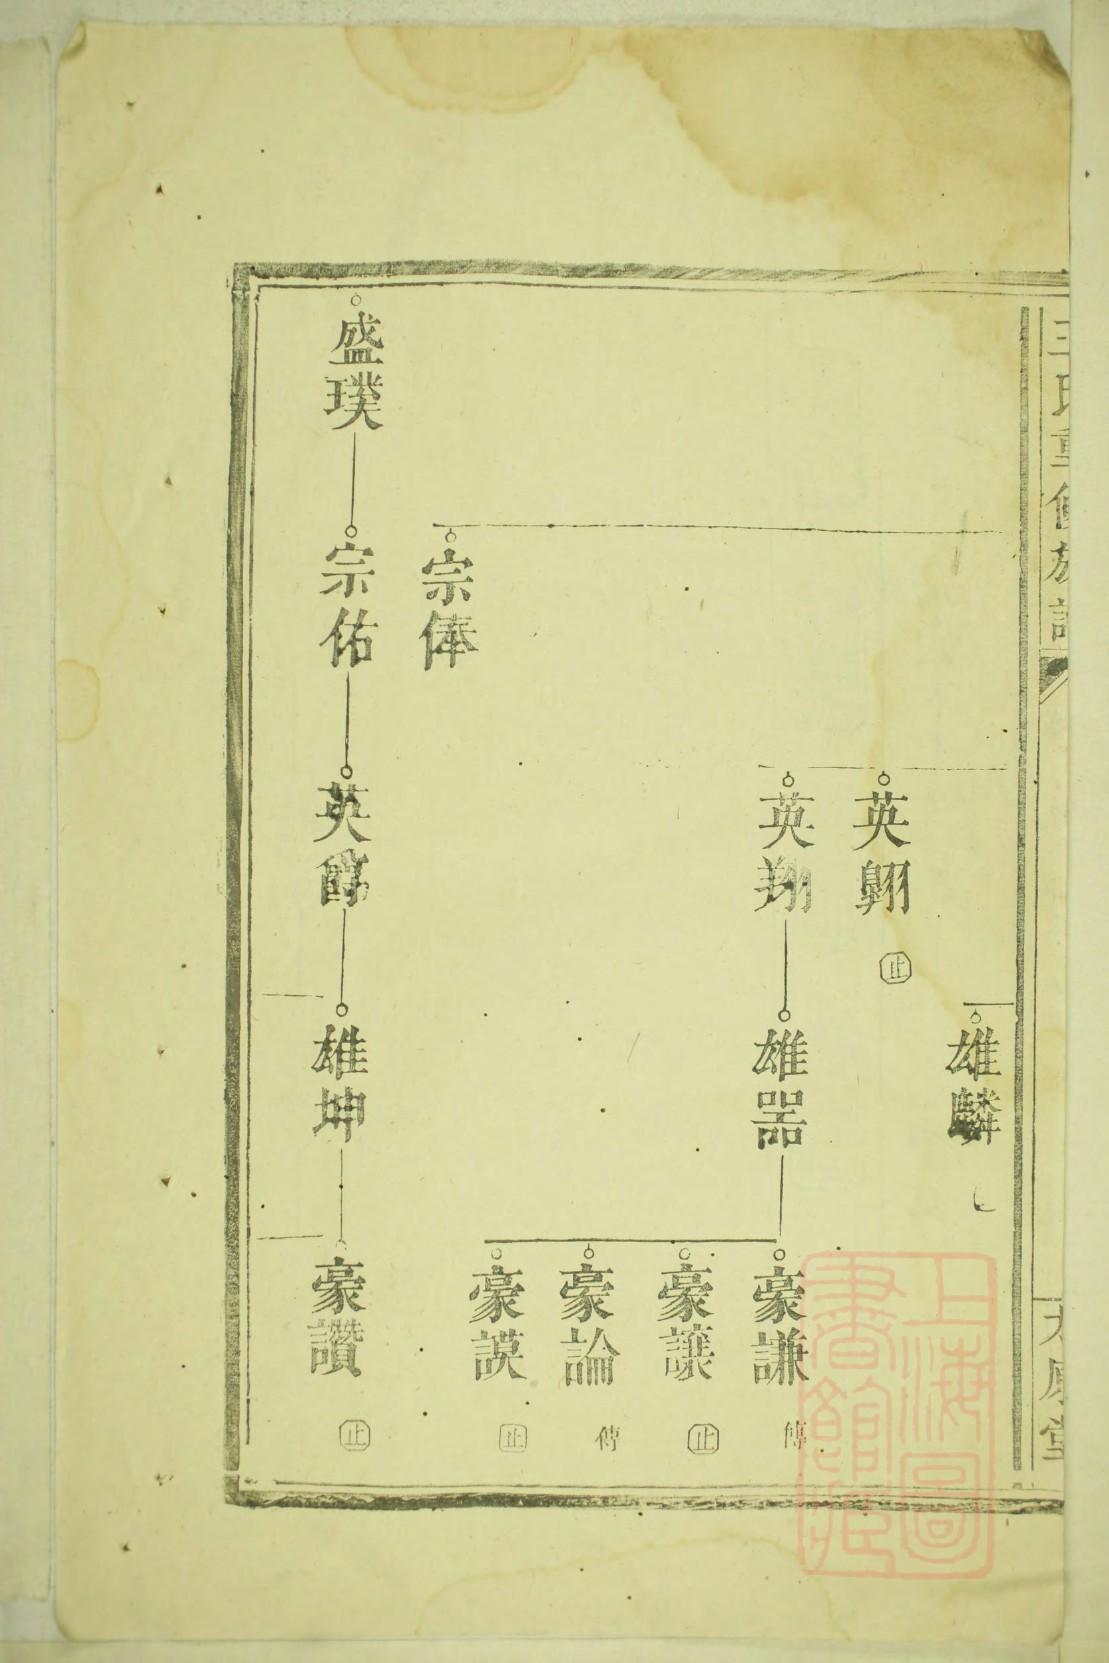 王氏重修族譜
太原堂
雄麟
英翱
止
英翔
雄器
豪謙
傳
豪讓
止
豪論
傳
豪謨
止
宗俸
盛璞
宗佑
英
雄坤
豪讚
止
上海圖
書館藏